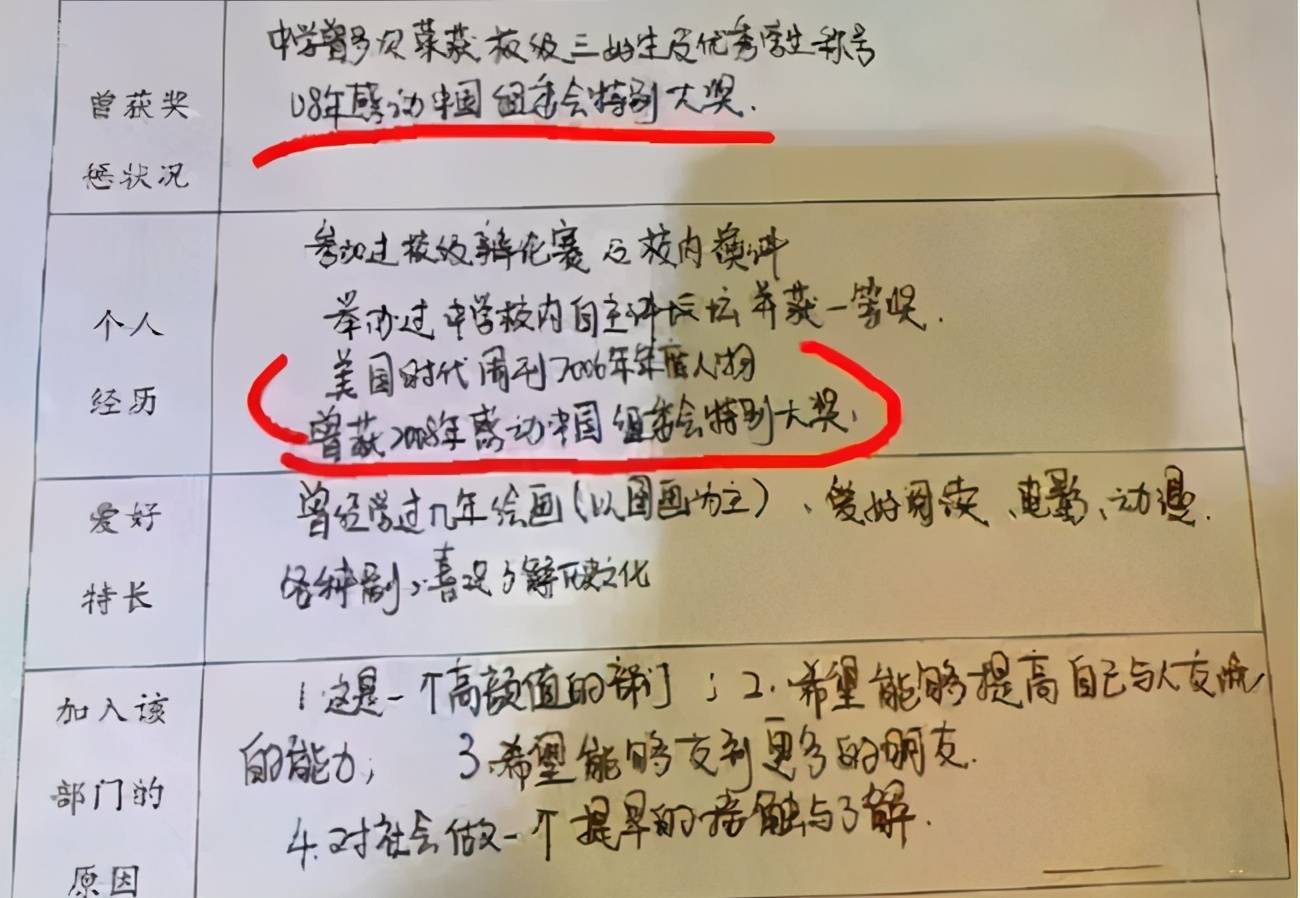 曾获奖
惩状况
中学曾多次荣获校级三好生及优秀学生称号
08年感动中国组委会特别大奖.
个人
经历
参加过校级辩论赛及校内演讲
举办过中学校内自主讲坛并获一等奖.
美国时代周刊2006年年度人物
曾获2008年感动中国组委会特别大奖.
爱好
特长
曾经学过几年绘画(以国画为主)、爱好阅读、电影、动漫.
各种剧、喜欢了解历史文化
加入该
部门的
原因
1.这是一个高颜值的部门;2.希望能够提高自己与人交流
的能力; 3.希望能够交到更多的朋友.
4.对社会做一个提早的接触与了解.